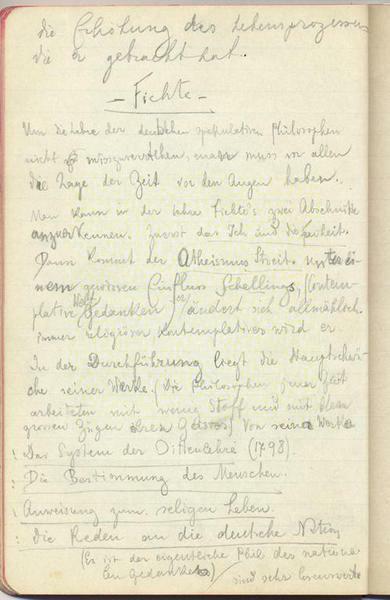 die Erhöhung des Lebensprozesses
die er gebracht hat.
– Fichte –
Um die Lehre der deutschen spekulativen Philosophen
nicht misszuverstehen, man muss vor allem
die Lage der Zeit vor den Augen haben.
Man kann in der Lehre Fichte's zwei Abschnitte
anzuerkennen. Zuerst das Ich und die
Dann kommt der Atheismus Streit. unter ei-
nem gewissen Einfluss Schellings, (Contem-
plative Welt Gedanken) ändert sich allmählich.
Immer religiöser kontemplativer wird er
In der Durchführung liegt die Hauptschwä-
che seiner Werke. (Die Philosophen jener Zeit
arbeiteten mit wenig Stoff und mit
grossen Zügen Von seine Werke
! Das System der Sittenlehre (1798)
: Die Bestimmung des Menschen.
! Anweisung zum seligen Leben.
: Die Reden an die deutsche Nation
(Er ist der eigentliche Phil. des nationa-
len Gedankens) sind sehr lesenswerte